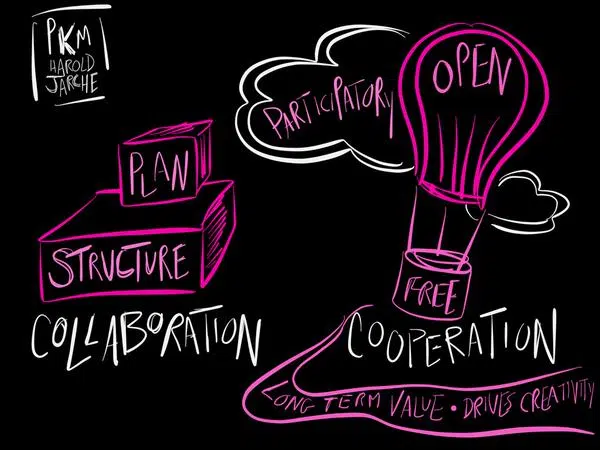 PKM
HAROLD
JARCHE
PLAN
STRUCTURE
COLLABORATION
PARTICIPATORY
OPEN
FREE
COOPERATION
LONG TERM VALUE • DRIVES CREATIVITY